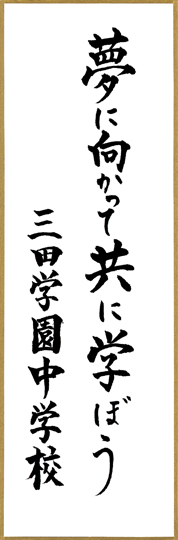 夢に向かって共に学ぼう
三田学園中学校